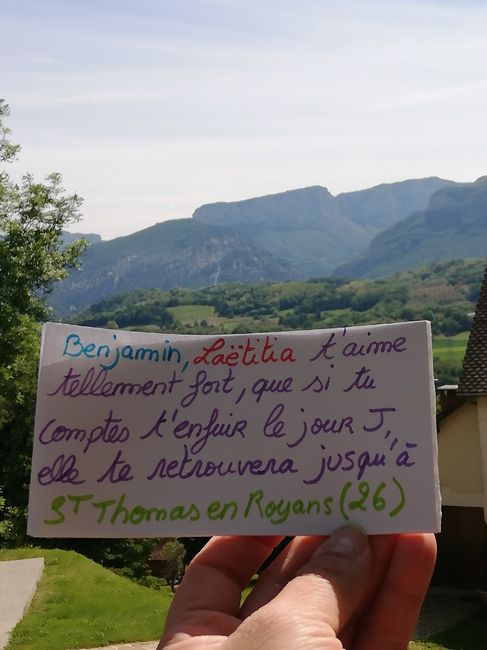 Benjamin, Laëtitia t'aime
tellement fort, que si tu
comptes t'enfuir le jour J,
elle te retrouvera jusqu'à
ST Thomas en Royans (26)